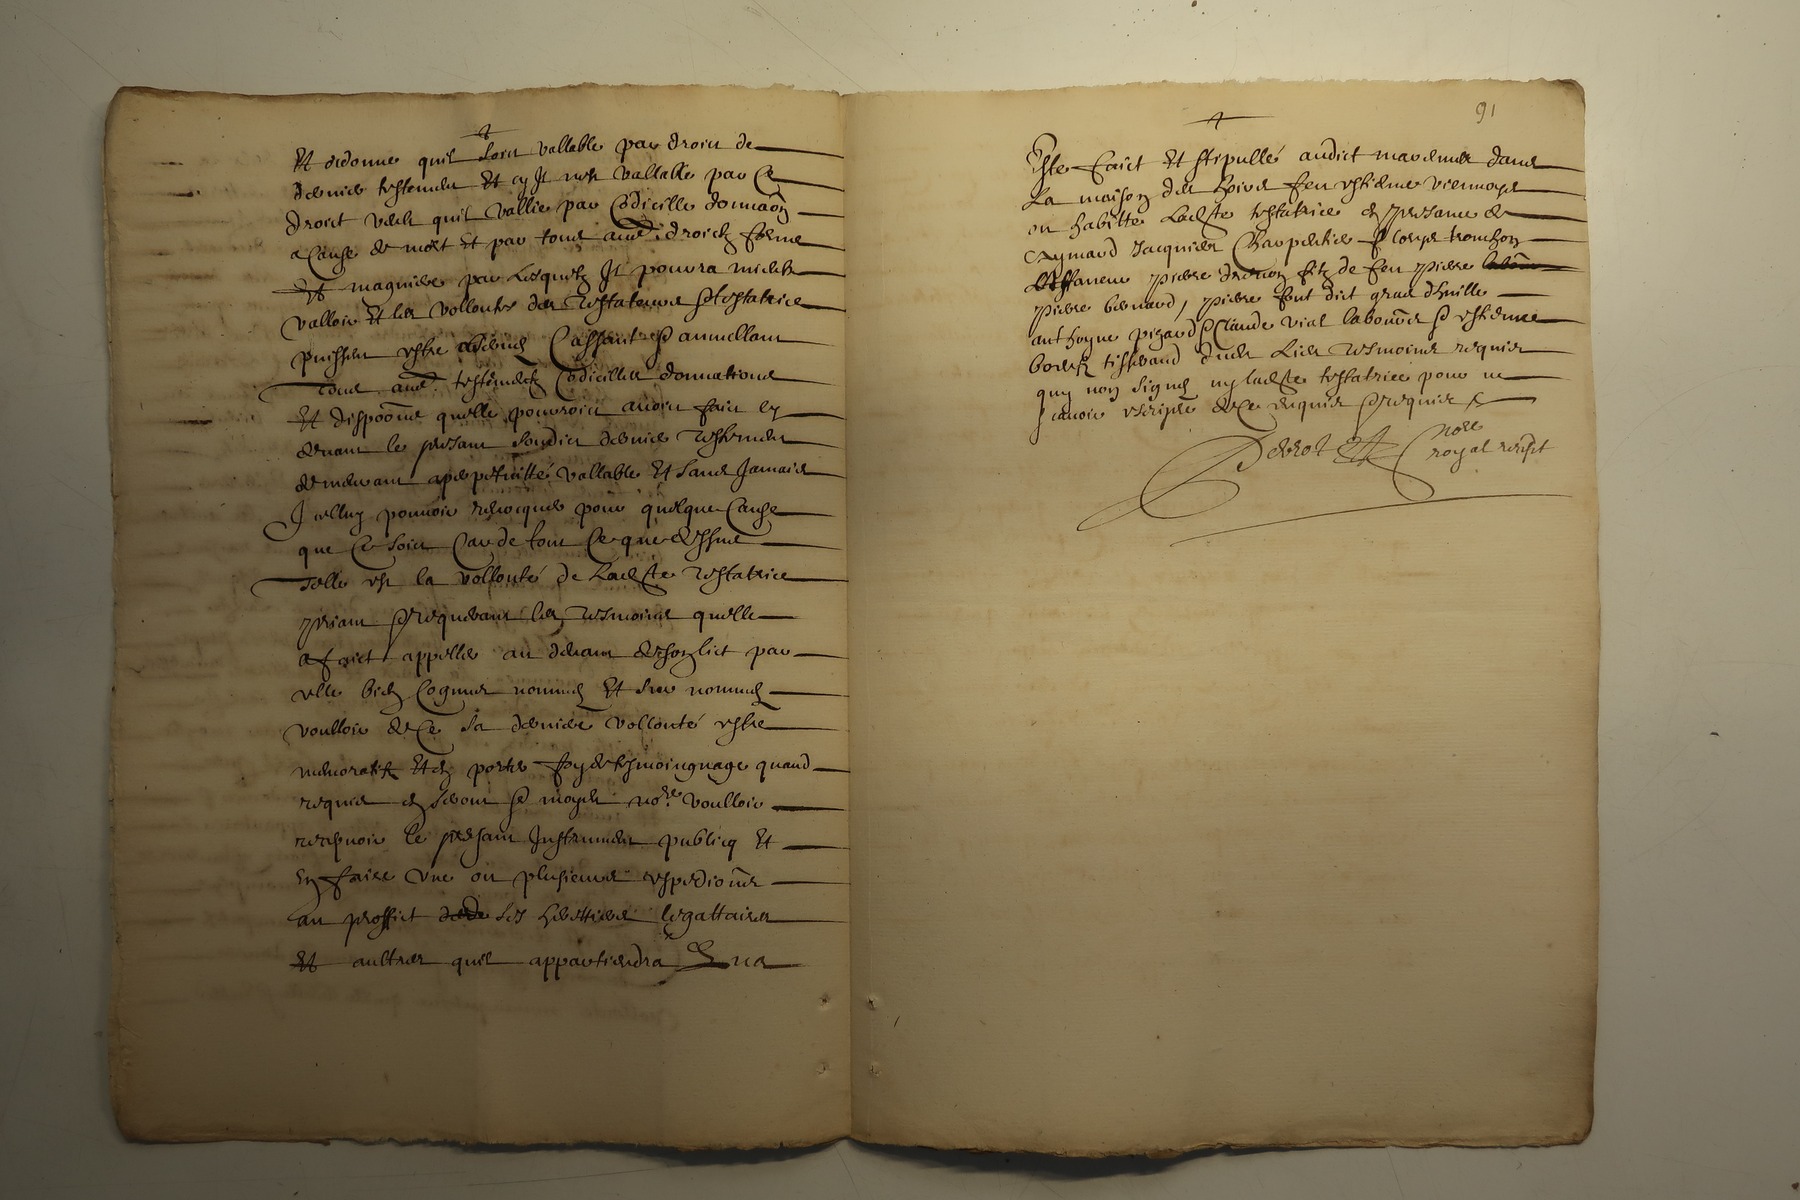 Et ordonne quil soict vallable par droict de
dernier testement Et cy Jl nest vallable par Ce
droict veult quil vallie par Codicille donnaōn
a Cause de mort Et par tous aues droictz forme
Et magniere par Lesquelz Jl pourra mieulx
valloir Et les vollontes des testateurs & testatrice
puissent estre observes Cassant & annullant
tous aues testementz Codicilles donnations
Et dispoōns quelle pourroict avoir faict cy
devant le present soudict dernier testement
demeurant a perpetuitté vallable Et sans Jamais
Jcelluy pouvoir revocquer pour quelque Cause
que Ce soict Car de tout Ce que dessus
telle est la vollonté de Ladicte testatrice
priant & requerant les tesmoins quelle
a faict appeller au devant de son lict par
elle bien Cognus nommes Et sur nommes
voulloir de Ce sa derniere vollonté estre
memoratifz Et en porter foy de tesmoingnage quand
requis en seront & moy no.re voulloir
recepvoir le present Jnstrument publicq Et
en faire une ou plusieurs expedions
au proffict de ses herittiers legattaires
Et aultres quil appartiendra
91
este faict Et stipullé audict dans
La maison des hoirs feu estienne
ou habitte Ladicte testatrice en presance de
Aymard Jacquier Charpentier
pierre filz de feu pierre
pierre bernard, pierre font dict grand d'huille
anthoyne pigard & Claude vial laboureurs & estienne
tisserand dudict Lieu tesmoins requis
quy nont signes ny ladicte testatrice pour ne
scavoir escripre de Ce enquis & requis
no.re
royal